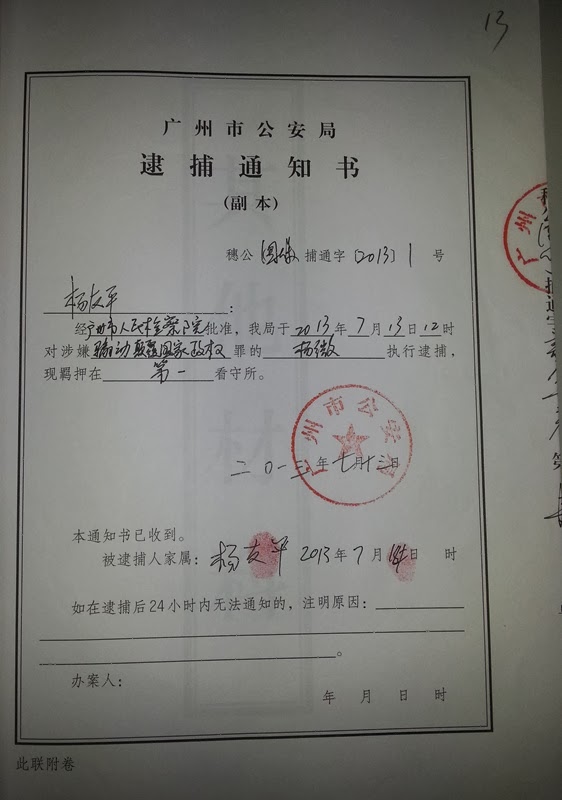 13
广州市公安局
逮捕通知书
(副本)
穗公 国保 捕通字〔2013〕1号
杨友平:
经广州市人民检察院批准，我局于2013年7月13日12时
对涉嫌煽动颠覆国家政权罪的杨微执行逮捕，
现羁押在第一看守所。
广州市公安局
二〇一三年七月十三日
本通知书已收到。
被逮捕人家属：杨友平 2013年7月 日 时
如在逮捕后24小时内无法通知的，注明原因：
。
办案人：
年 月 日 时
此联附卷